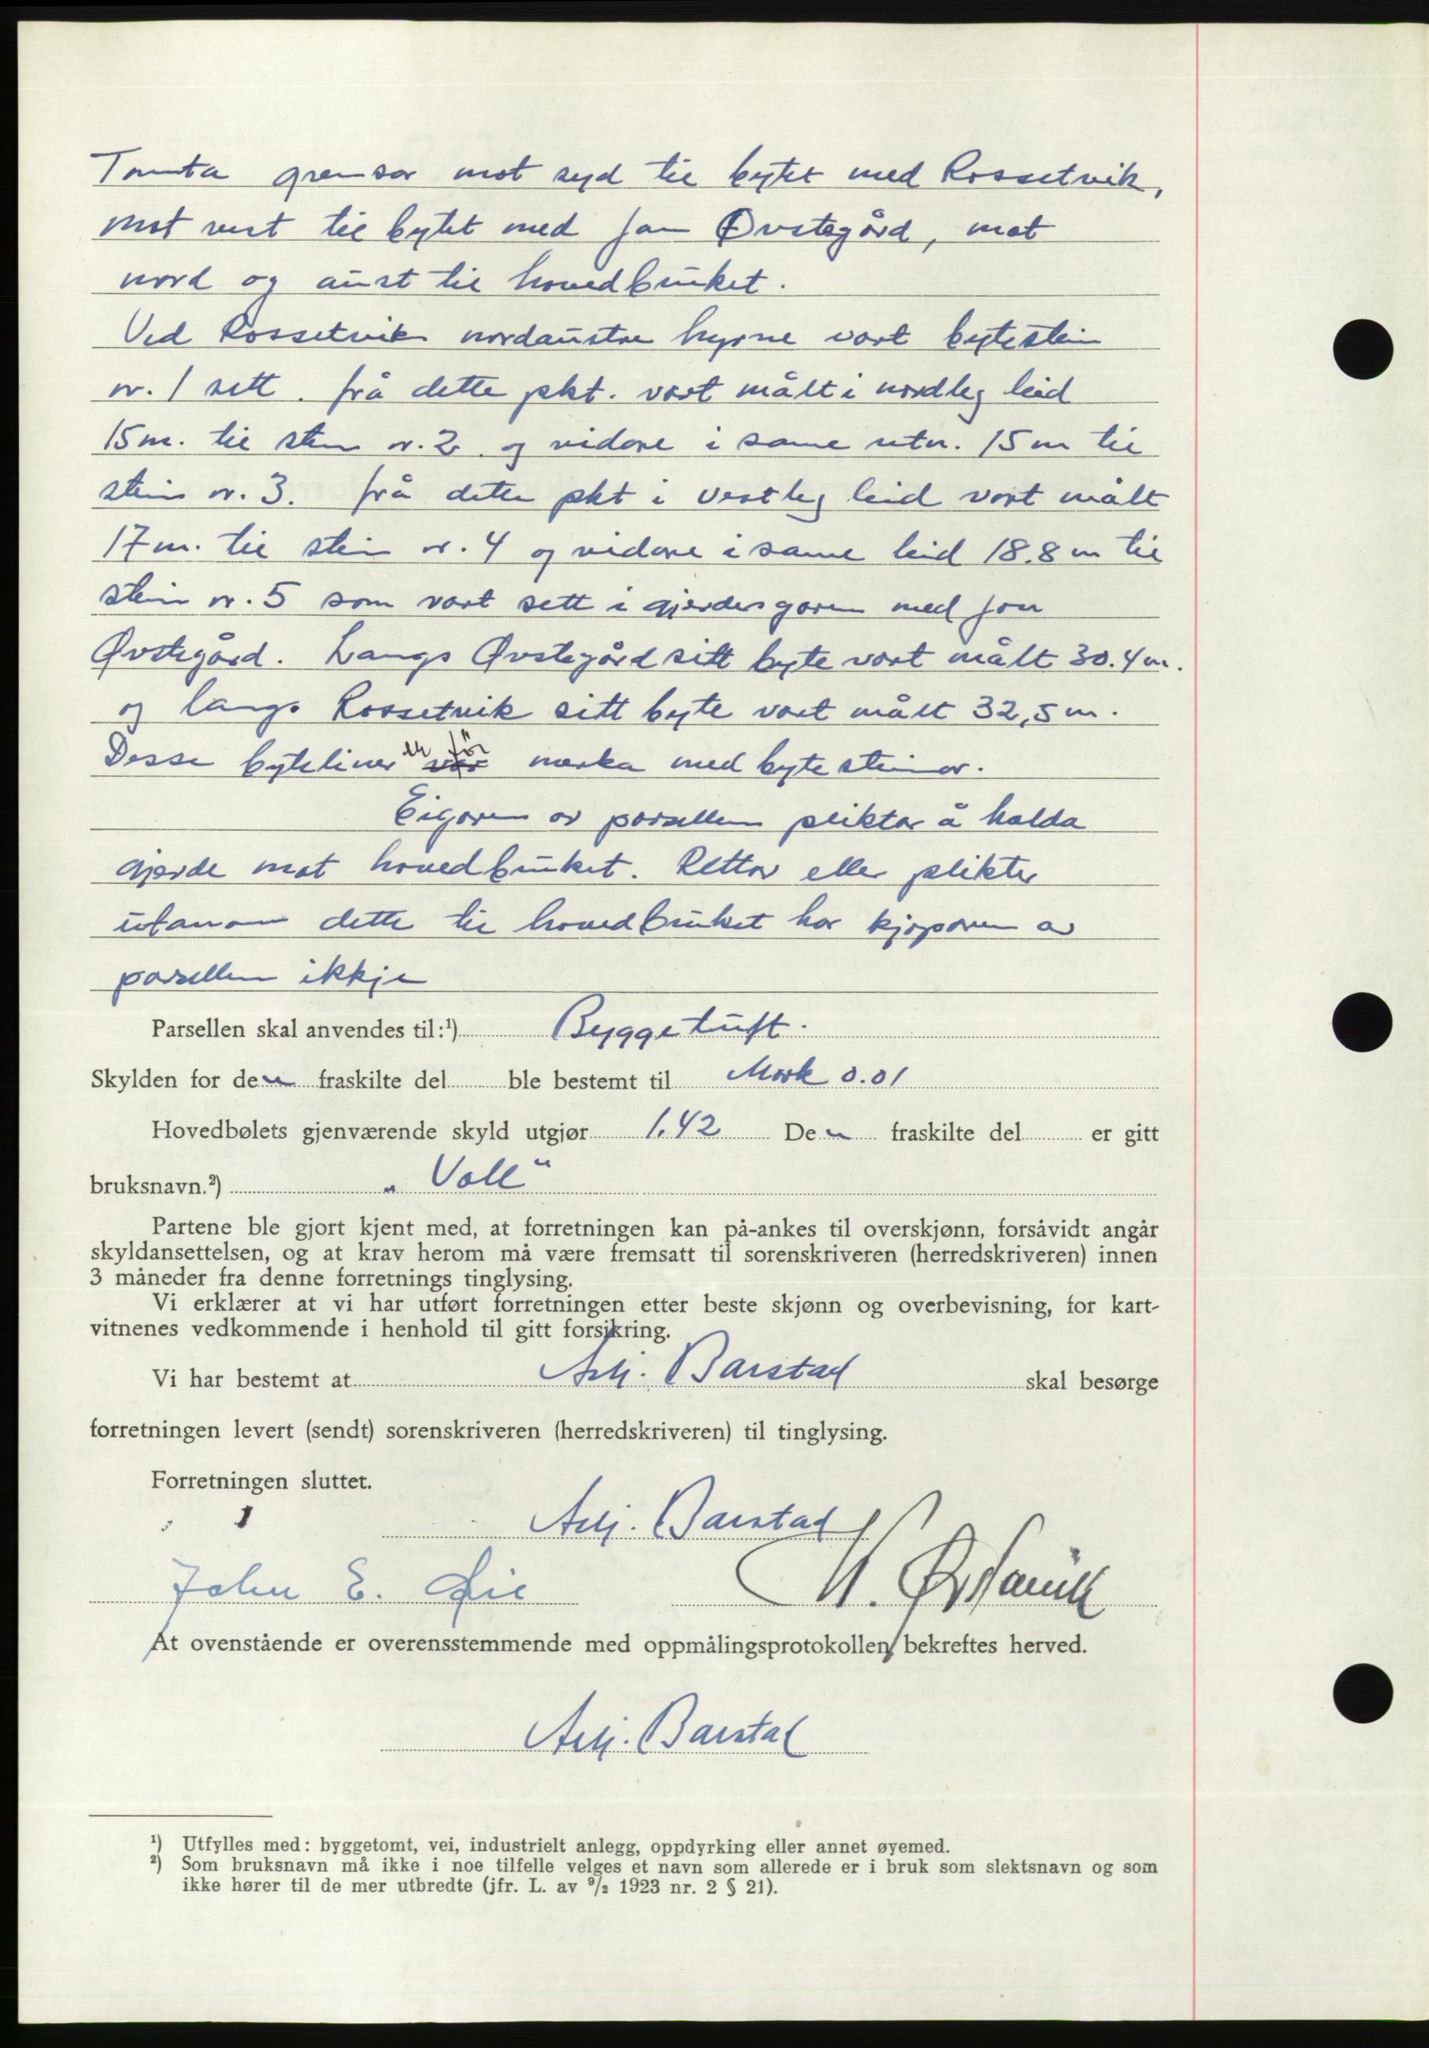 Tomta grensar mot syd til bytet med Rossetvik,
mot vest til bytet med Jon Øvstegård, mot
nord og aust til hovedbruket.
Ved Rossetvik nordaustre hyrne vart bytestein
nr. 1 sett. frå dette pkt. vart målt i nordleg leid
15 m. til stein nr. 2. og vidare i same retn. 15 m til
stein nr. 3. frå dette pkt i vestleg leid vart målt
17 m. til stein nr. 4 og vidare i same leid 18.8 m til
stein nr. 5 som vart sett i gjerdesgaren med Jon
Øvstegård. Langs Øvstegård sitt byte vart målt 30.4 m.
og langs Rossetvik sitt byte vart målt 32,5 m.
Desse byteliner er før merka med bytesteinar.
Eigaren av parsellen pliktar å halda
gjerde mot hovedbruket. Rettar eller plikter
utanom dette til hovedbruket har kjøparen av
parsellen ikkje
Parsellen skal anvendes til:¹) Byggetuft.
Skylden for den fraskilte del ble bestemt til Mark 0.01
Hovedbølets gjenværende skyld utgjør 1.42 Den fraskilte del er gitt
bruksnavn.²) „Voll"
Partene ble gjort kjent med, at forretningen kan på-ankes til overskjønn, forsåvidt angår
skyldansettelsen, og at krav herom må være fremsatt til sorenskriveren (herredskriveren) innen
3 måneder fra denne forretnings tinglysing.
Vi erklærer at vi har utført forretningen etter beste skjønn og overbevisning, for kart-
vitnenes vedkommende i henhold til gitt forsikring.
Vi har bestemt at Asbj. Barstad skal besørge
forretningen levert (sendt) sorenskriveren (herredskriveren) til tinglysing.
Forretningen sluttet.
Asbj. Barstad
John E. Øie K. Ørstavik
At ovenstående er overensstemmende med oppmålingsprotokollen bekreftes herved.
Asbj. Barstad
¹) Utfylles med: byggetomt, vei, industrielt anlegg, oppdyrking eller annet øyemed.
²) Som bruksnavn må ikke i noe tilfelle velges et navn som allerede er i bruk som slektsnavn og som
ikke hører til de mer utbredte (jfr. L. av ⁹/₂ 1923 nr. 2 § 21).